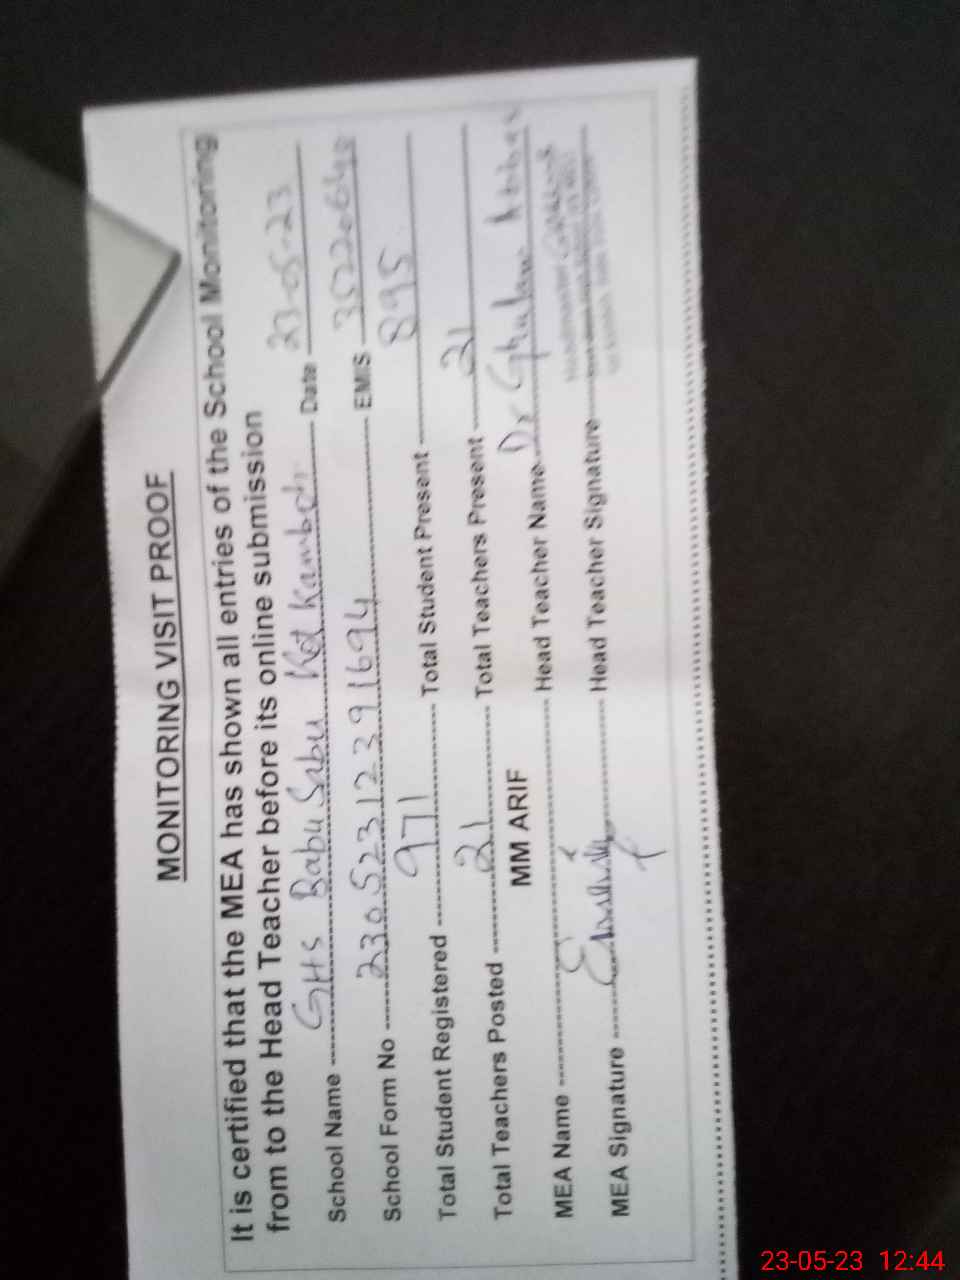 MONITORING VISIT PROOF
It is certified that the MEA has shown all entries of the School Monitoring
from to the Head Teacher before its online submission
School Name GHS Babu Sabu Kot Kamboh Date 23-05-23
School Form No 23052312391694 EMIS
Total Student Registered 971 Total Student Present 895
Total Teachers Posted 21 Total Teachers Present 21
MEA Name MM ARIF Head Teacher Name Dr Ghulam
MEA Signature Head Teacher Signature
23-05-23 12:44